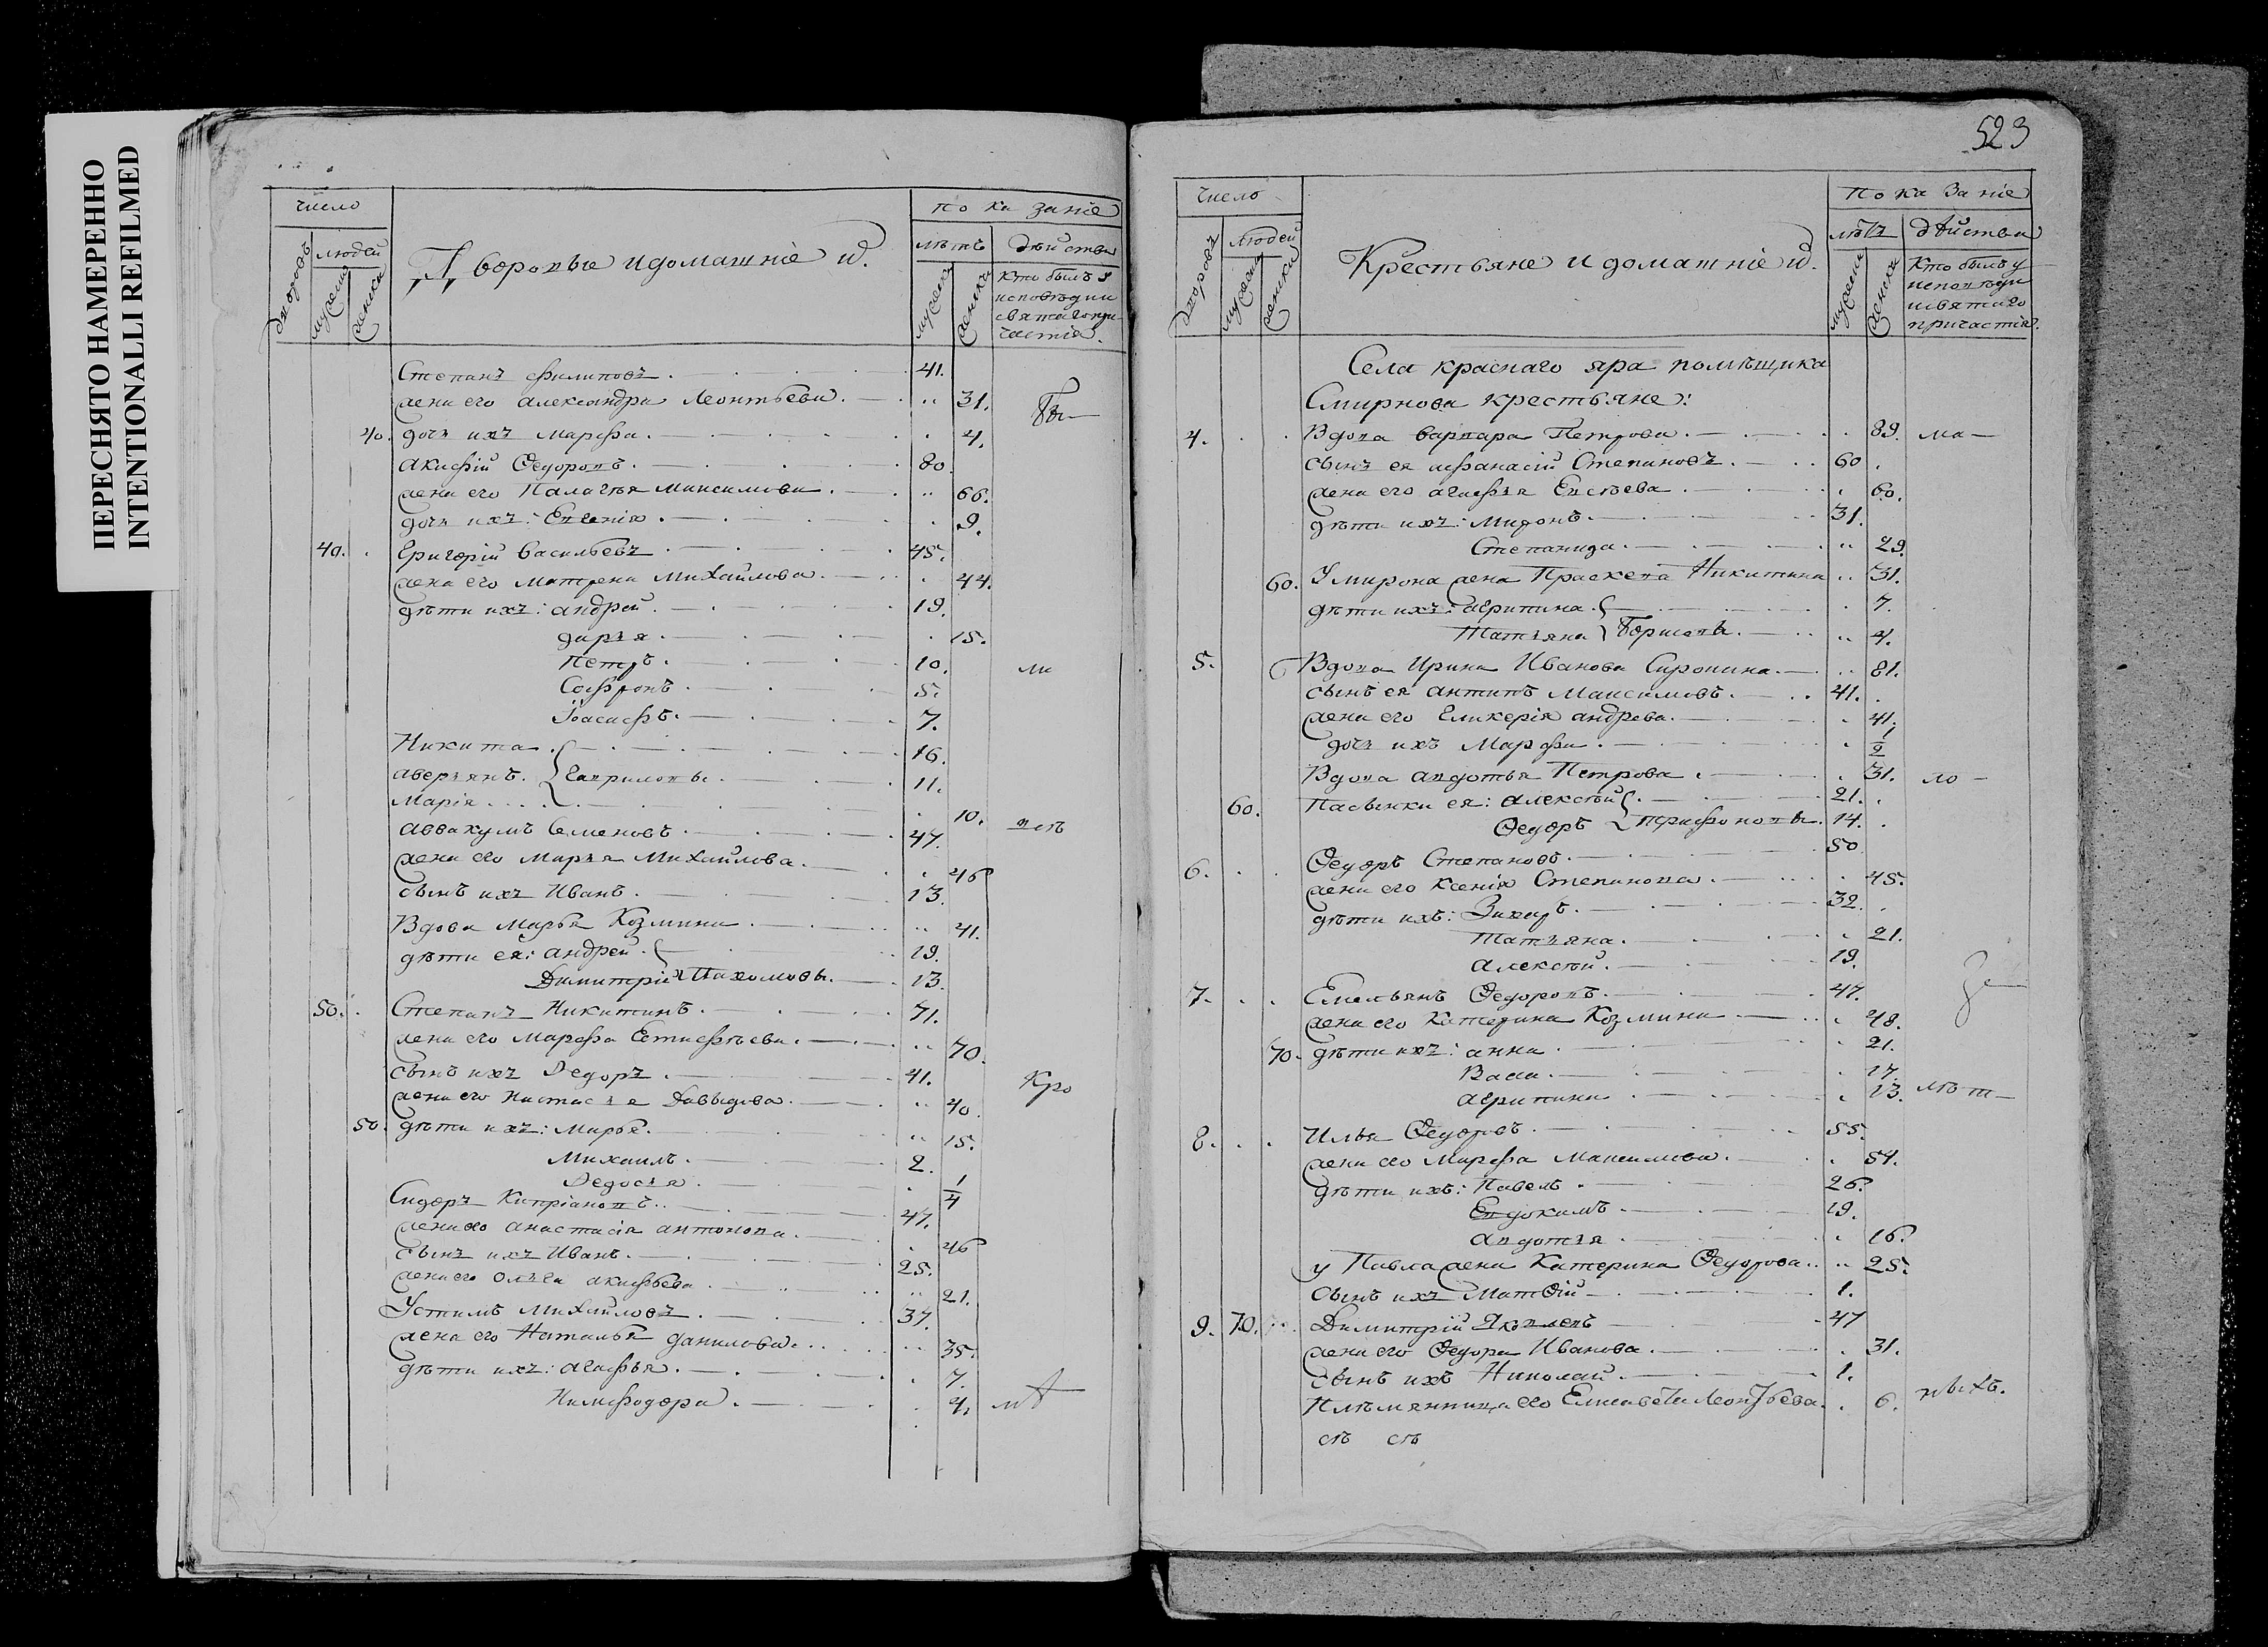 ПЕРЕСНЯТО НАМЕРЕННО
INTENTIONALLI REFILMED
число
показаніе
дворовъ
людей
мужска
женска
Дворовые и домашніе и.
лѣтъ
дѣйства
мужска
женска
Кто былъ у
исповѣди и
святаго при-
частія.
Степанъ Филиповъ. 41.
жена его Александра Леонтьева. 31. Бы-
40. дочь ихъ Марѳа. 4.
Акифій Ѳедоровъ. 80.
жена его Палагѣя Максимова. 66.
дочь ихъ: Евгенія. 9.
40. Григорій Васильевъ 45.
жена его Матрена Михайлова. 44.
дѣти ихъ: Андрей. 19.
Дарья. 15.
Петръ. 10. ли
Софронъ. 5.
Іоасафъ. 7.
Никита 16.
Аверьянъ. Гавриловы. 11.
Марія 10.
Аввакумъ Семеновъ. 47. всѣ
жена его Марья Михайлова. 46
сынъ ихъ Иванъ. 13.
Вдова Марья Козмина 41.
дѣти ея: Андрей. 19.
Димитрій Пахомовы. 13.
50. Степанъ Никитинъ. 71.
жена его Марфа Естифѣева. 70.
сынъ ихъ Ѳедоръ. 41.
жена его Настасья Давыдова. 40. Кро
50. дѣти ихъ: Марья. 15.
Михаилъ. 2.
Ѳедосья. 1/4
Сидоръ Кипріановъ. 47.
жена его Анастасія Антонова. 46
сынъ ихъ Иванъ. 25.
жена его Ольга Акифьева. 21.
Устимъ Михайловъ. 37.
жена его Наталья Данилова. 35.
дѣти ихъ: Агафья. 7.
Нимфодора. 4. мѣ
523
число
показаніе
дворовъ
людей
мужска
женска
Крестьяне и домашніе и.
лѣтъ
дѣйства
мужска
женска
Кто былъ у
исповѣди
и святаго
причастія.
Села краснаго яра помѣщика
Смирнова крестьяне:
4. Вдова Варвара Петрова. 89. ма-
сынъ ея Афанасій Степановъ. 60.
жена его Агафья Евсѣева. 60.
дѣти ихъ: Миронъ. 31.
Степанида. 29.
60. У Мирона жена Прасковья Никитина 31.
дѣти ихъ: Агрипина. 7.
Татьяна Борисовы. 4.
5. Вдова Ирина Иванова Сиропина. 81.
сынъ ея Антипъ Максимовъ. 41.
жена его Гликерія Андрева. 41.
дочь ихъ Марфа. 1/2
Вдова Авдотья Петрова. 31. ло-
60. Пасынки ея: Алексѣй 21.
Ѳедоръ Парфеновы. 14.
6. Ѳедоръ Степановъ. 50
жена его Ксенія Степанова. 45.
дѣти ихъ: Захаръ. 32.
Татьяна. 21.
Алексѣй. 19.
7. Емельянъ Ѳедоровъ. 47.
жена его Катерина Козмина 48.
70. дѣти ихъ: Анна. 21.
Васа. 17.
Агрипина 13. лѣт-
8. Илья Ѳедоровъ. 55.
жена его Марфа Максимова. 54.
дѣти ихъ: Павелъ. 26.
Евдокимъ. 19.
Авдотья. 16.
у Павла жена Катерина Ѳедорова. 25.
сынъ ихъ Матѳій 1.
9. 70. Димитрій Яковлевъ 47
жена его Ѳедора Иванова. 31.
сынъ ихъ Николай. 1.
Племянница его Елисавета Леонтьева. 6.
съ съ